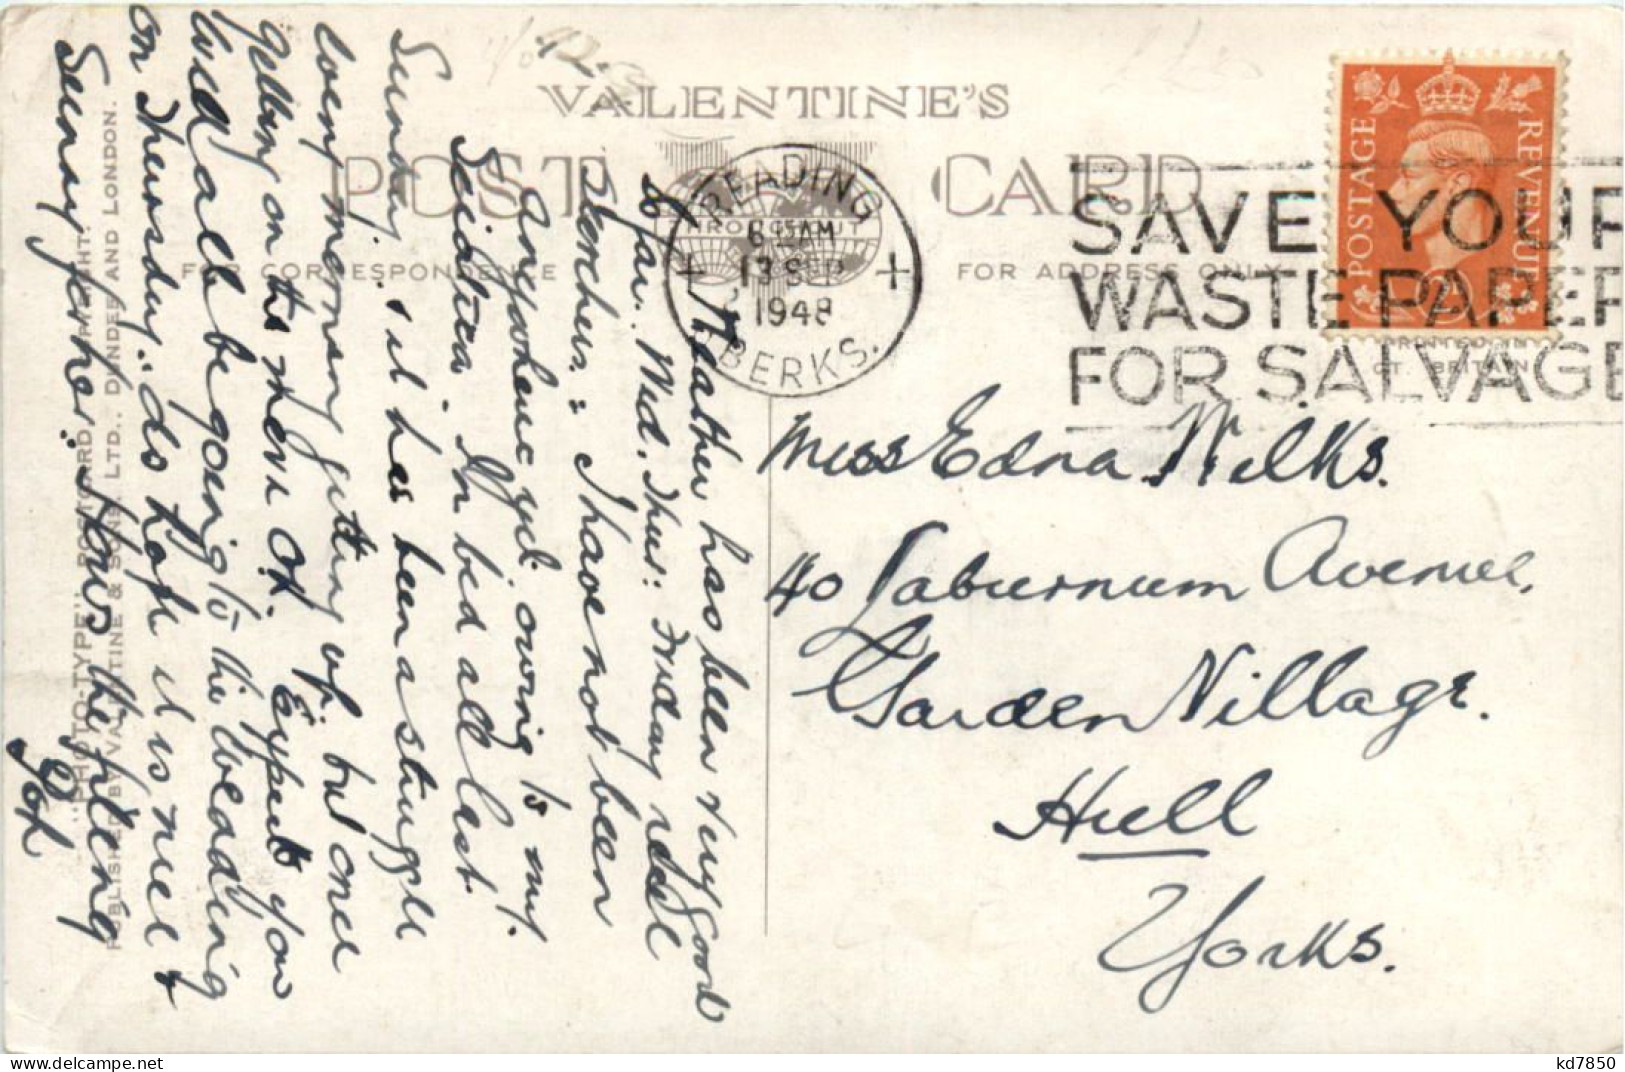 VALENTINE'S
POST CARD
FOR CORRESPONDENCE
FOR ADDRESS ONLY
READING
6 15 AM
13 SEP
1948
BERKS.
SAVE YOUR
WASTE PAPER
FOR SALVAGE
POSTAGE
REVENUE
PRINTED IN
GT. BRITAIN
Weather has been very good
so far. Wed. Thur: Friday real
Scorchers: I have not been
anywhere yet owing to my
Sciatica. In bed all last
Sunday. it has been a struggle
every morning getting up, but one
getting on the move OK. Expect you
will all be going to the wedding
on Thursday. do hope it is nice &
Sunny for her. Hows the filling
Miss Edna Wilks.
40 Laburnum Avenue,
Garden Village.
Hull
Yorks.
"PHOTO-TYPE" POSTCARD. COPYRIGHT.
PUBLISHED BY VALENTINE & SONS, LTD., DUNDEE AND LONDON.
kd7850